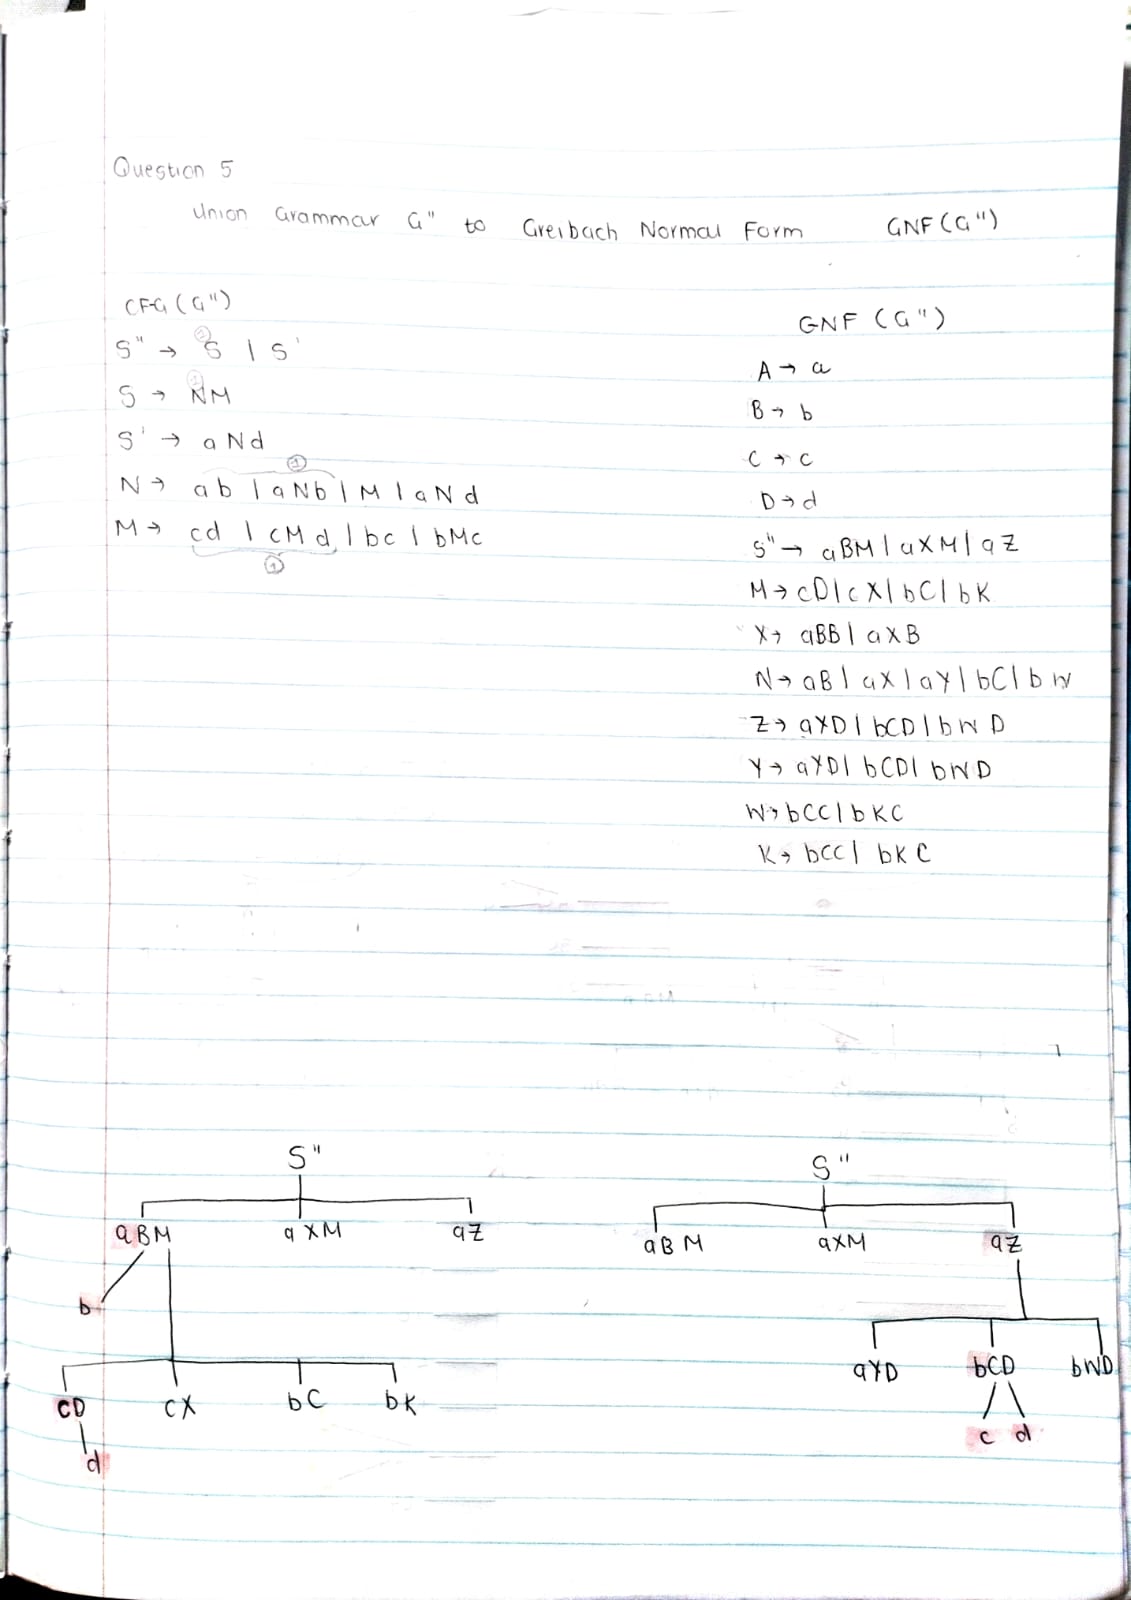 Question 5
Union Grammar G" to Greibach Normal Form GNF (G")
CFG (G")
S" → S | S'
S → NM
S' → aNd
N → ab | aNb | M | aNd
M → cd | cMd | bc | bMc
GNF (G")
A → a
B → b
C → c
D → d
S" → aBM | aXM | aZ
M → cD | cX | bC | bK
X → aBB | aXB
N → aB | aX | aY | bC | bW
Z → aYD | bCD | bWD
Y → aYD | bCD | bWD
W → bCC | bKC
K → bCC | bKC
S"
aBM aXM aZ
b
cD cX bC bK
d
S"
aBM aXM aZ
aYD bCD bWD
c d